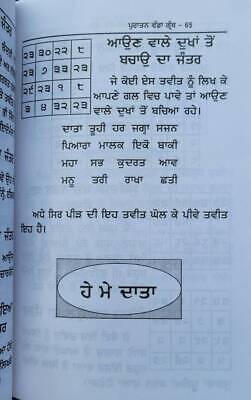 ਪੁਰਾਤਨ ਵੱਡਾ ਗ੍ਰੰਥ - 65
੨੩ ੩੦ ੨੨ ੮
੨੩ ੭ ੩੩ ੨੩
੨੯ ੨੧ ੯ ੧
੩ ੪ ੩੨ ੨੩
ਆਉਣ ਵਾਲੇ ਦੁਖਾਂ ਤੋਂ
ਬਚਾਉ ਦਾ ਜੰਤਰ
ਜੇ ਕੋਈ ਏਸ ਤਵੀਤ ਨੂੰ ਲਿਖ ਕੇ
ਆਪਣੇ ਗਲ ਵਿਚ ਪਾਵੇ ਤਾਂ ਆਉਣ
ਵਾਲੇ ਦੁਖਾਂ ਤੋਂ ਬਚਿਆ ਰਹੇ।
ਦਾਤਾ ਤੂਹੀ ਹਰ ਜਗ੍ਹਾ ਸਜਨ
ਪਿਆਰਾ ਮਾਲਕ ਇਕੋ ਬਾਕੀ
ਮਹਾ ਸਭ ਕੁਦਰਤ ਆਵ
ਮਨੂ ਤਰੀ ਰਾਖਾ ਛਤੀ
ਅਧੇ ਸਿਰ ਪੀੜ ਦੀ ਇਹ ਤਵੀਤ ਘੋਲ ਕੇ ਪੀਵੇ ਤਵੀਤ
ਇਹ ਹੈ।
ਹੇ ਮੇ ਦਾਤਾ